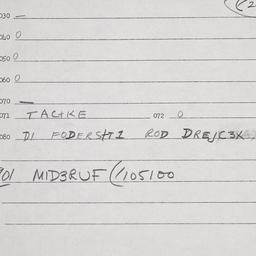 030 —
040 0
050 0
060 0
070 —
071 TACHKE 072 0
080 DI FODERSHTI ROD DRE/C3X
901 MID3RUF(/105100